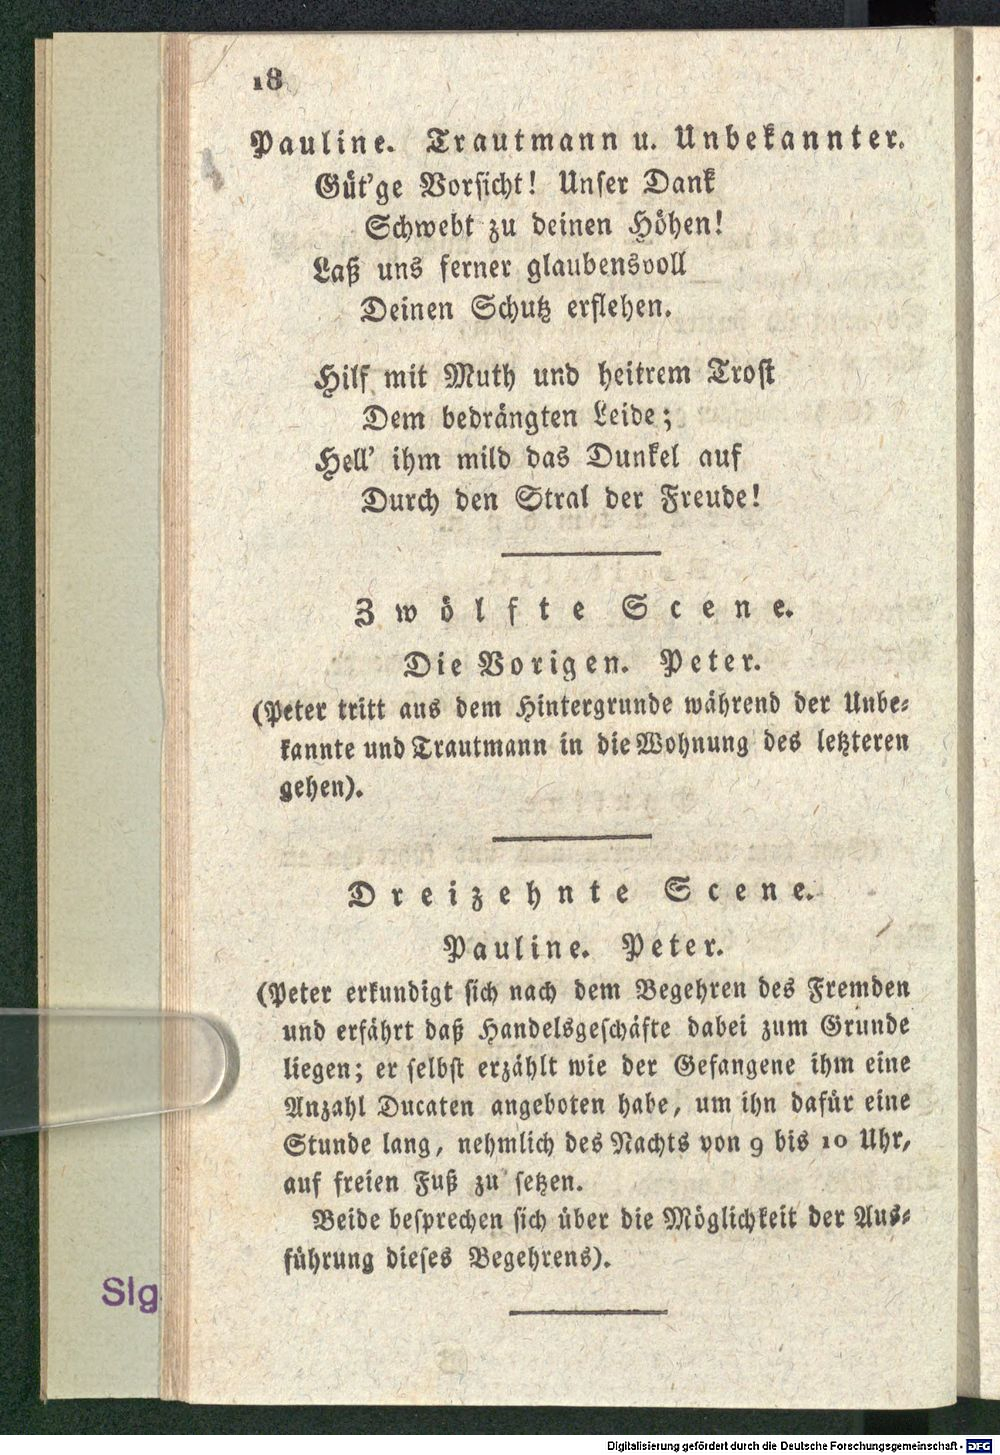 18
Pauline. Trautmann u. Unbekannter.
Güt'ge Vorsicht! Unser Dank
Schwebt zu deinen Höhen!
Laß uns ferner glaubensvoll
Deinen Schutz erflehen.
Hilf mit Muth und heitrem Trost
Dem bedrängten Leide;
Hell' ihm mild das Dunkel auf
Durch den Stral der Freude!
Zwölfte Scene.
Die Vorigen. Peter.
(Peter tritt aus dem Hintergrunde während der Unbe-
kannte und Trautmann in die Wohnung des letzteren
gehen).
Dreizehnte Scene.
Pauline. Peter.
(Peter erkundigt sich nach dem Begehren des Fremden
und erfährt daß Handelsgeschäfte dabei zum Grunde
liegen; er selbst erzählt wie der Gefangene ihm eine
Anzahl Ducaten angeboten habe, um ihn dafür eine
Stunde lang, nehmlich des Nachts von 9 bis 10 Uhr,
auf freien Fuß zu setzen.
Beide besprechen sich über die Möglichkeit der Aus-
führung dieses Begehrens).
Slg
Digitalisierung gefördert durch die Deutsche Forschungsgemeinschaft - DFG